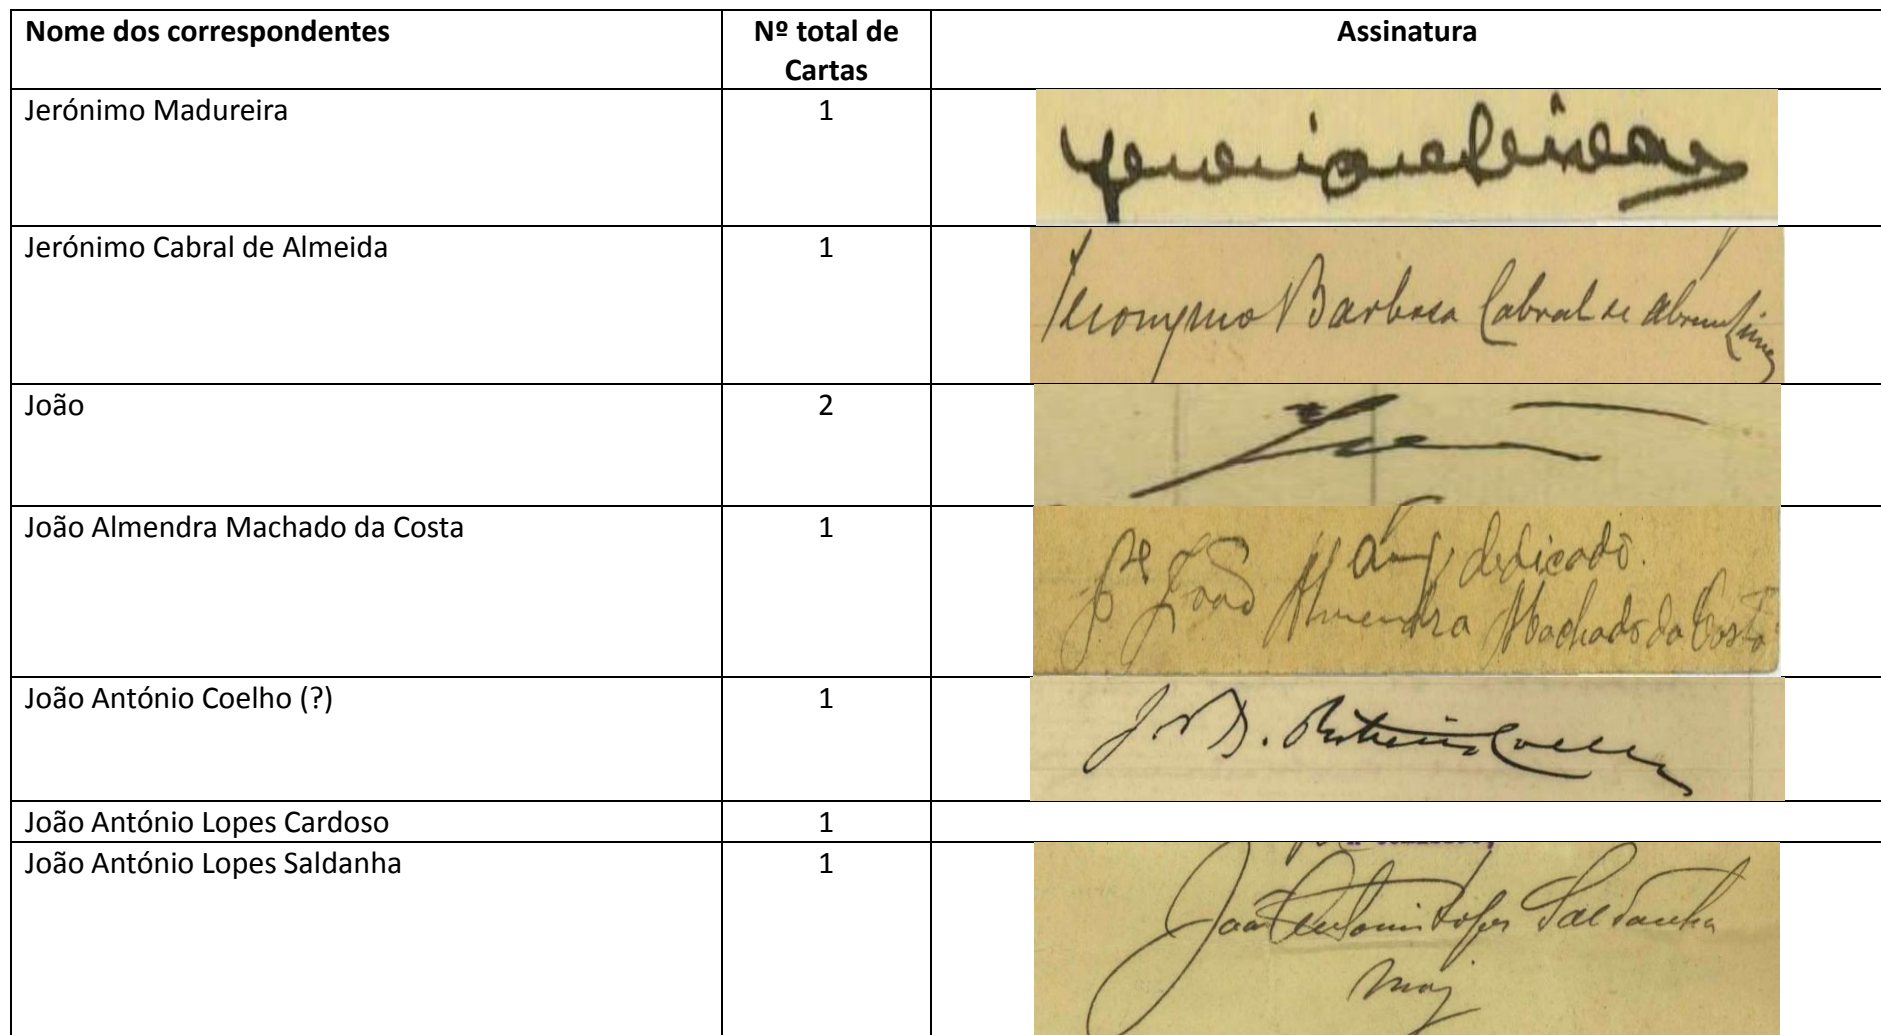 Nome dos correspondentes
Nº total de
Cartas
Assinatura
Jerónimo Madureira
1
Jerónimo Cabral de Almeida
1
Jeronymo Barbosa Cabral de Abreu Lima
João
2
João Almendra Machado da Costa
1
dedicado.
Pe João Almendra Machado da Costa
João António Coelho (?)
1
Coelho
João António Lopes Cardoso
1
João António Lopes Saldanha
1
João Antonio Lopes Saldanha
Maj